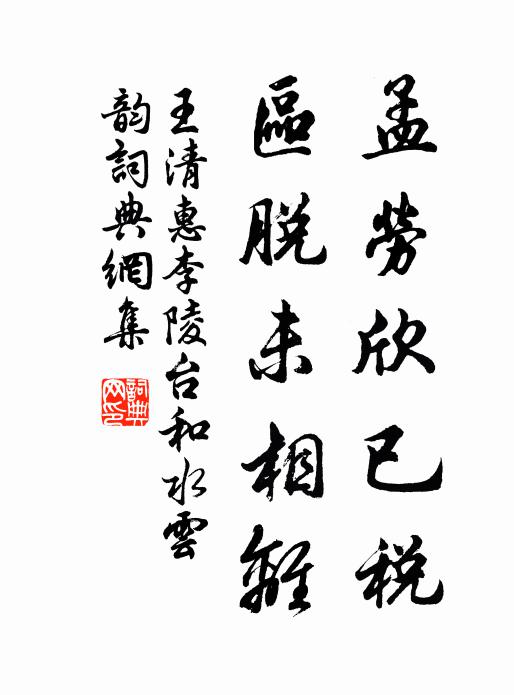 孟勞欣已税
區脱未相離
王清惠李陵台和水雲
韵詞典網集
詞典
网印